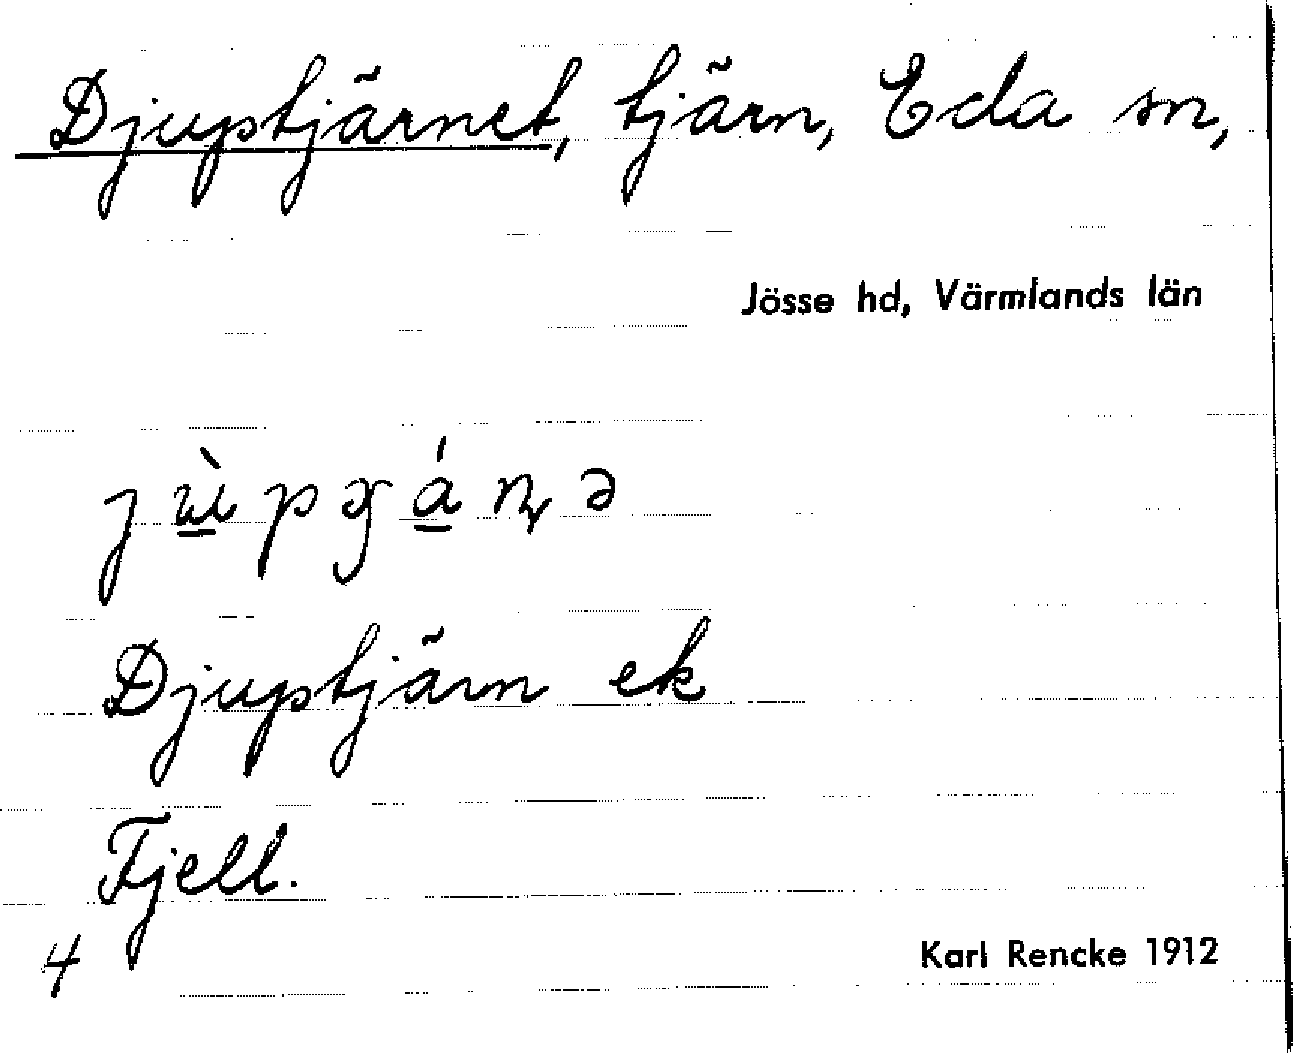 Djuptjärnet, tjärn, Eda sn,
Jösse hd, Värmlands län
Djuptjärn ek
Fjell.
4
Karl Rencke 1912